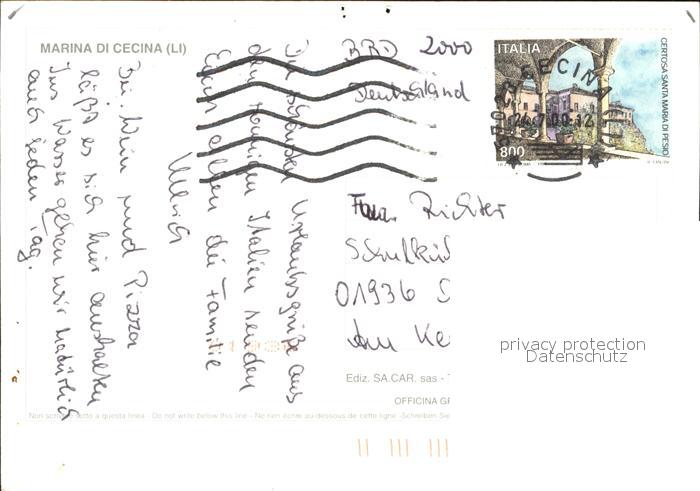 MARINA DI CECINA (LI)
BRD 2000
Deutschland
ITALIA
800
CERTOSA SANTA MARIA DI PESIO
CECINA
26.7.00.12
Die schönsten Urlaubsgrüße aus
dem sonnigen Italien senden
Euch allen die Familie
Ullrich
Bei Wein und Pizza
läßt es sich hier aushalten
Ins Wasser gehen wir natürlich
auch jeden Tag.
Frau Richter
01936 S
Am Ke
privacy protection
Datenschutz
Ediz. SA.CAR. sas -
OFFICINA GR
Non scrivere sotto a questa linea - Do not write below this line - Ne rien écrire au-dessous de cette ligne -Schreiben Sie